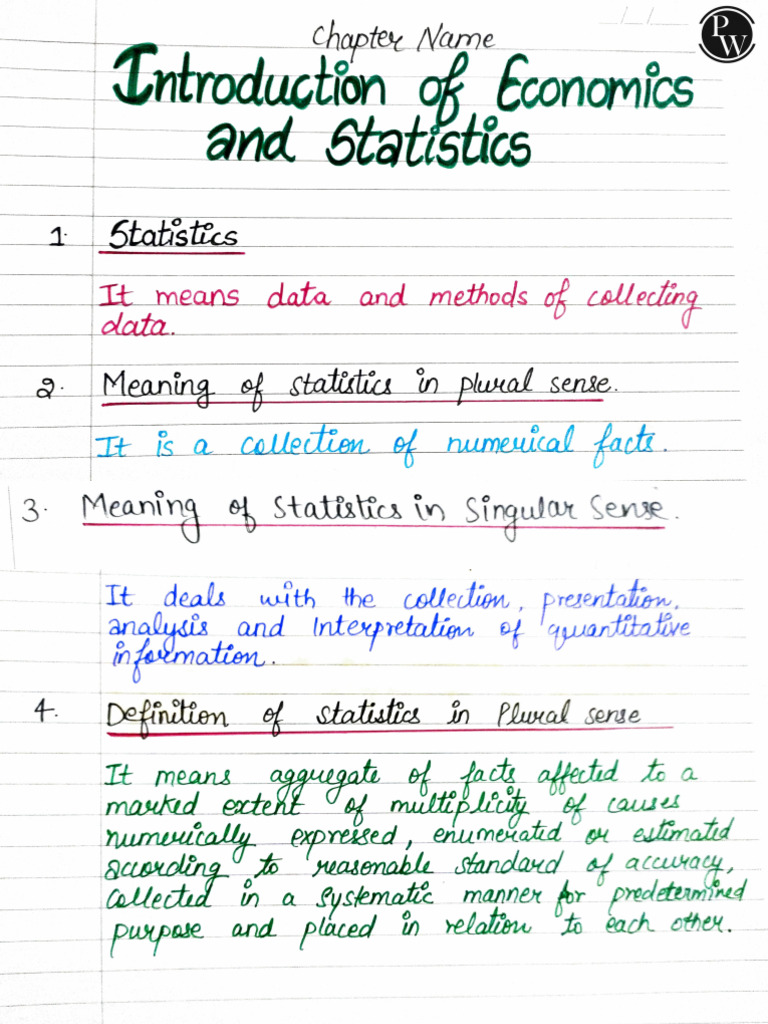 Chapter Name
PW
Introduction of Economics
and Statistics
1. Statistics
It means data and methods of collecting
data.
2. Meaning of statistics in plural sense.
It is a collection of numerical facts.
3. Meaning of Statistics in Singular Sense.
It deals with the collection, presentation,
analysis and Interpretation of quantitative
information.
4. Definition of statistics in Plural sense
It means aggregate of facts affected to a
marked extent of multiplicity of causes
numerically expressed, enumerated or estimated
according to reasonable standard of accuracy,
collected in a systematic manner for predetermined
purpose and placed in relation to each other.